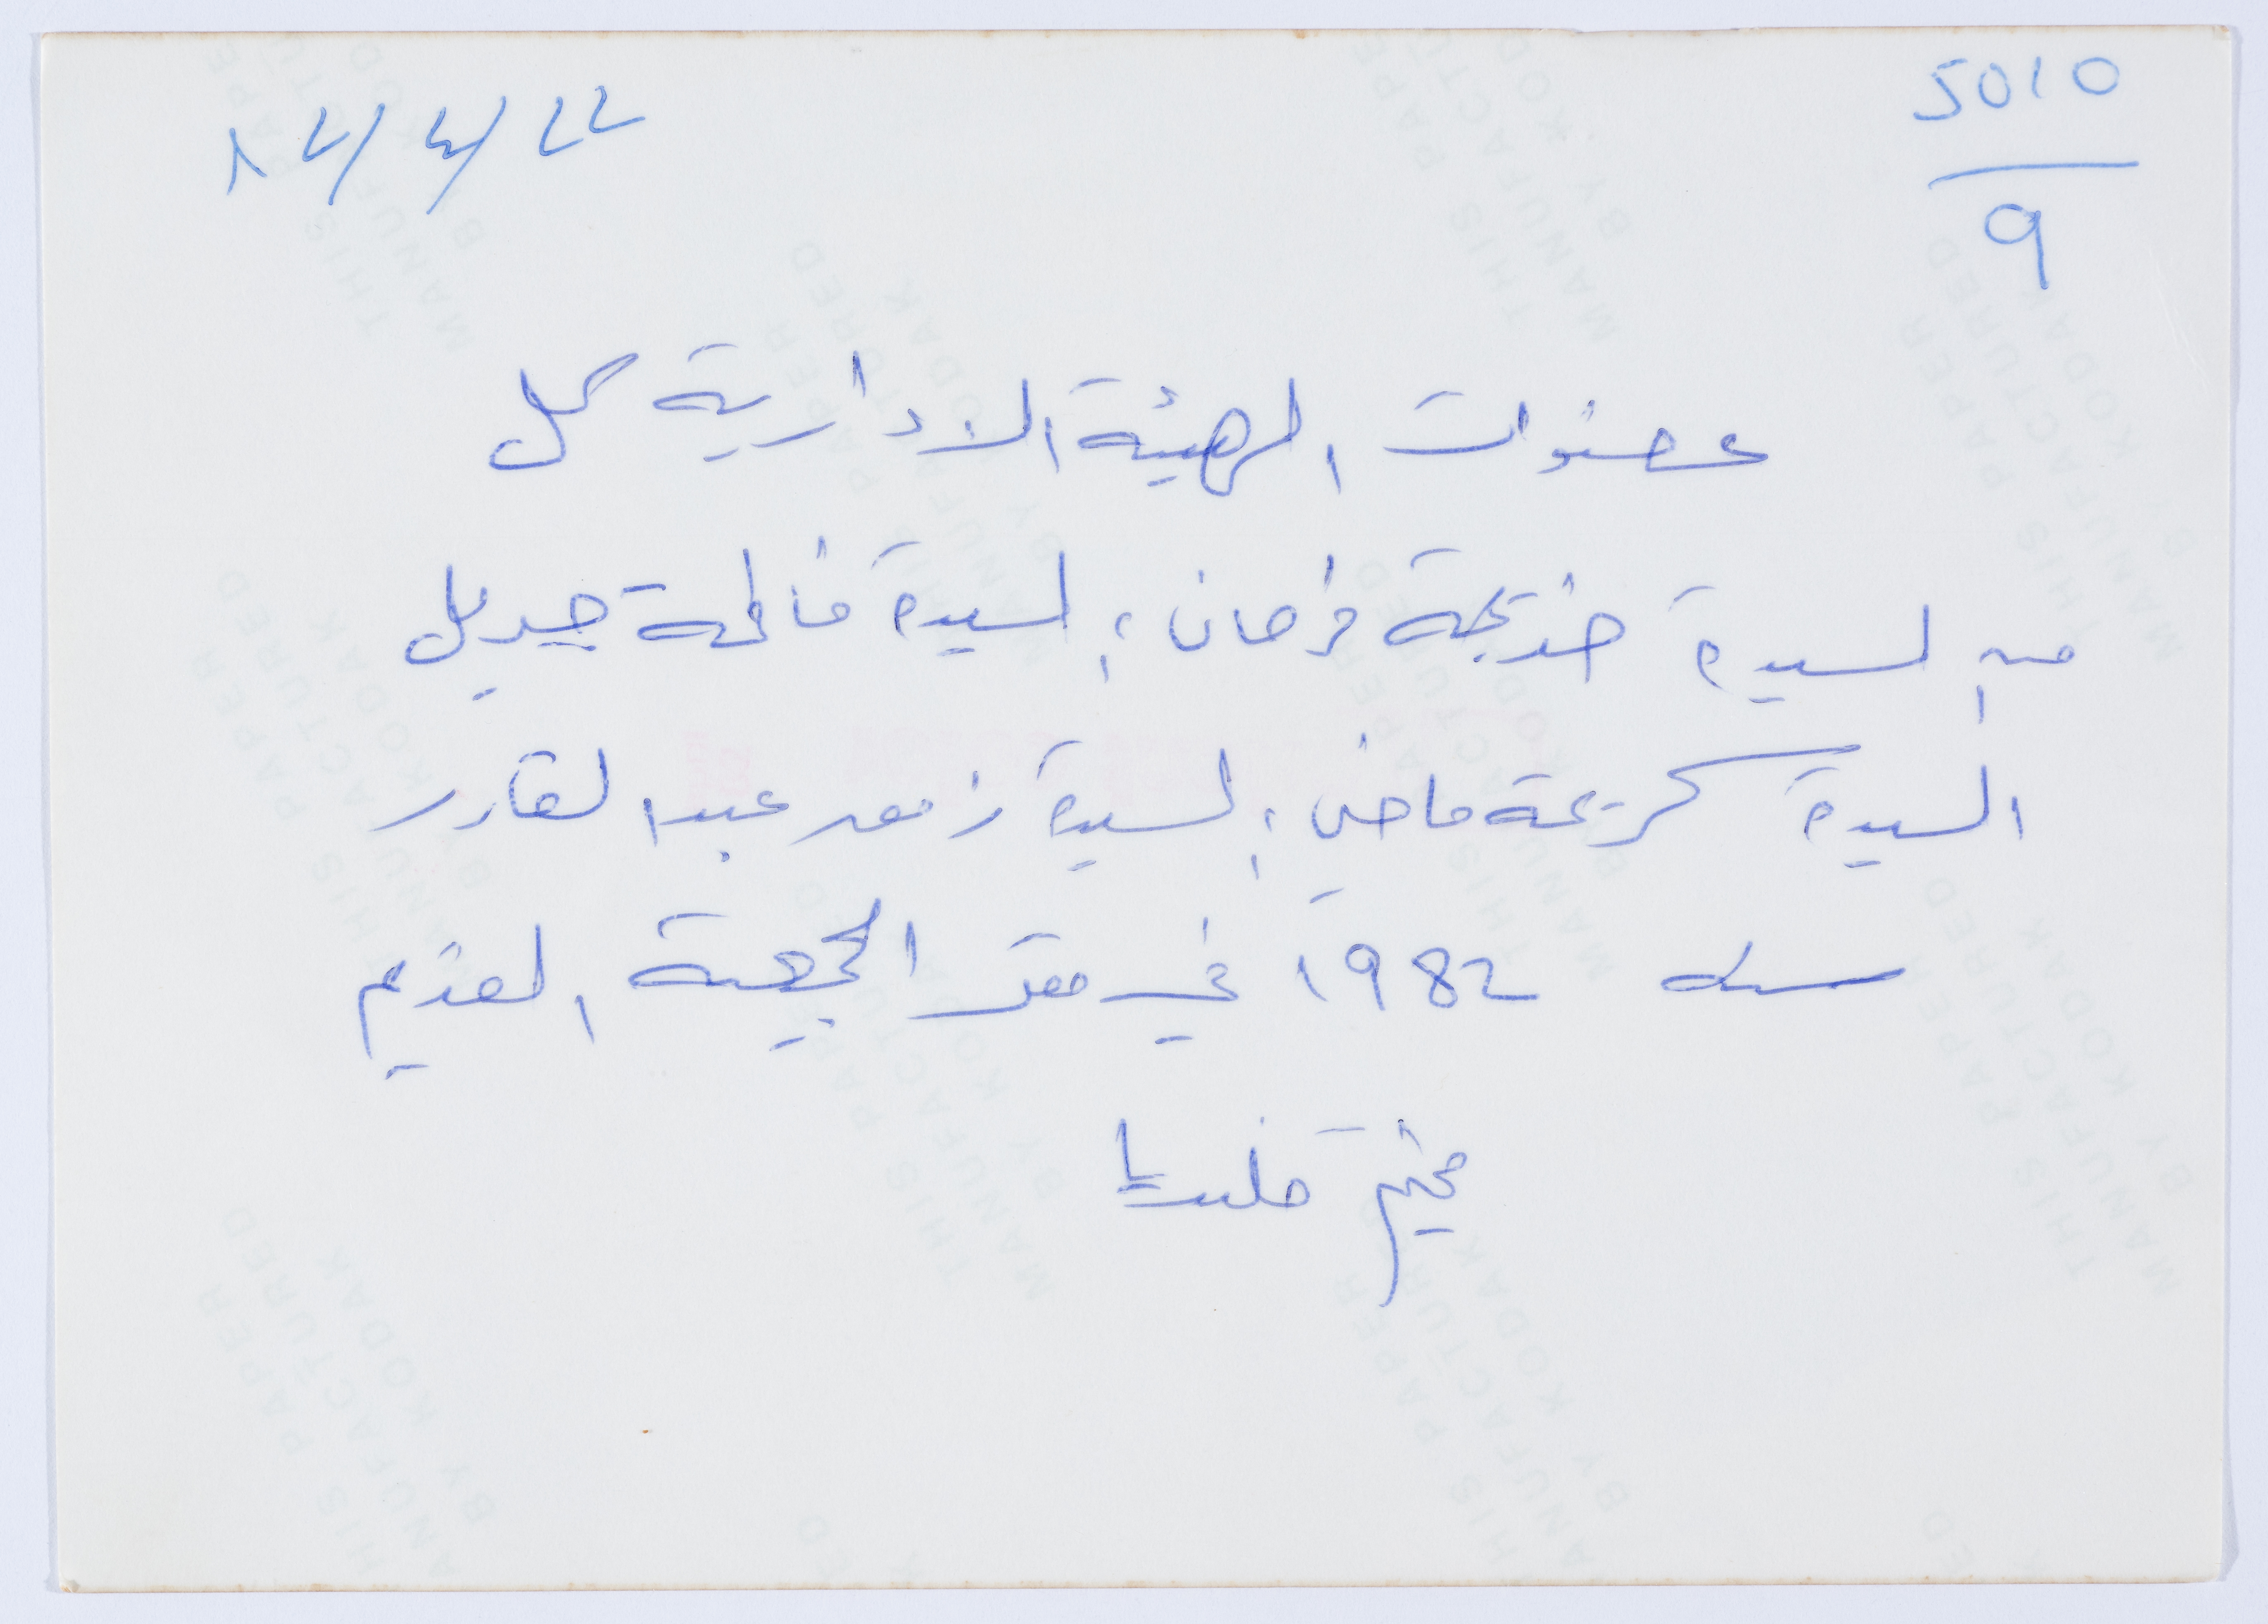 5010
9
٨٢/٤/٢٢
عضوات الهيئة الادارية كل
من السيدة خديجة فرحان، السيدة فاطمة جبريل
السيدة كريمة ماضي، السيدة عبد القادر
سنة 1982 في مقر الجمعية القديم
مخيم قلنديا
THIS PAPER
MANUFACTURED
BY KODAK